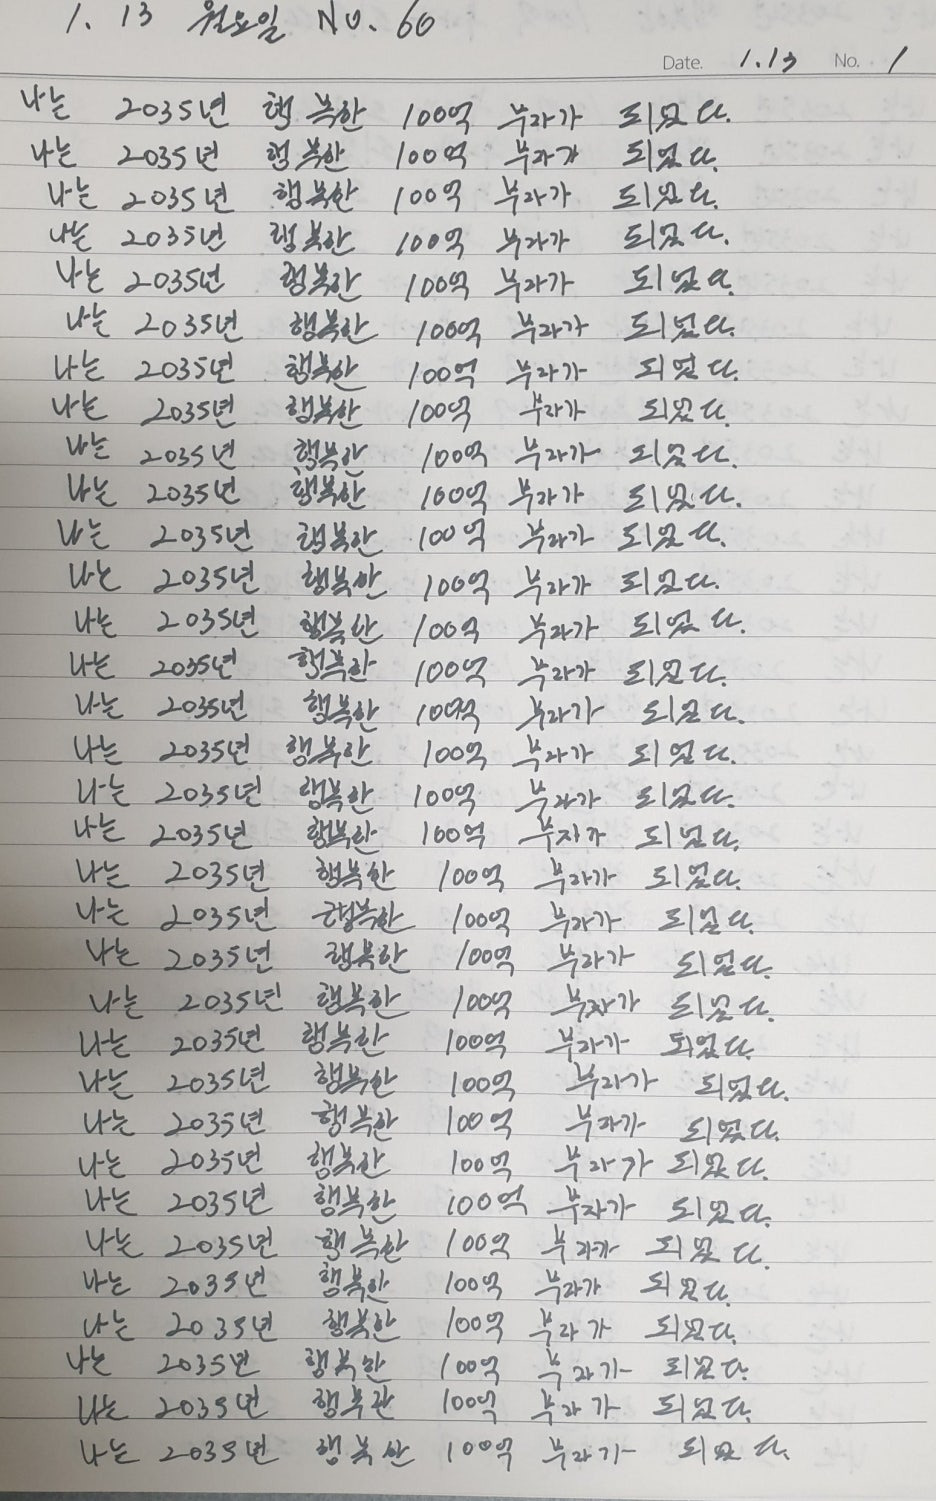 1. 13 월요일 No. 60
Date. 1.13 No. 1
나는 2035년 행복한 100억 부자가 되었다.
나는 2035년 행복한 100억 부자가 되었다.
나는 2035년 행복한 100억 부자가 되었다.
나는 2035년 행복한 100억 부자가 되었다.
나는 2035년 행복한 100억 부자가 되었다.
나는 2035년 행복한 100억 부자가 되었다.
나는 2035년 행복한 100억 부자가 되었다.
나는 2035년 행복한 100억 부자가 되었다.
나는 2035년 행복한 100억 부자가 되었다.
나는 2035년 행복한 100억 부자가 되었다.
나는 2035년 행복한 100억 부자가 되었다.
나는 2035년 행복한 100억 부자가 되었다.
나는 2035년 행복한 100억 부자가 되었다.
나는 2035년 행복한 100억 부자가 되었다.
나는 2035년 행복한 100억 부자가 되었다.
나는 2035년 행복한 100억 부자가 되었다.
나는 2035년 행복한 100억 부자가 되었다.
나는 2035년 행복한 100억 부자가 되었다.
나는 2035년 행복한 100억 부자가 되었다.
나는 2035년 행복한 100억 부자가 되었다.
나는 2035년 행복한 100억 부자가 되었다.
나는 2035년 행복한 100억 부자가 되었다.
나는 2035년 행복한 100억 부자가 되었다.
나는 2035년 행복한 100억 부자가 되었다.
나는 2035년 행복한 100억 부자가 되었다.
나는 2035년 행복한 100억 부자가 되었다.
나는 2035년 행복한 100억 부자가 되었다.
나는 2035년 행복한 100억 부자가 되었다.
나는 2035년 행복한 100억 부자가 되었다.
나는 2035년 행복한 100억 부자가 되었다.
나는 2035년 행복한 100억 부자가 되었다.
나는 2035년 행복한 100억 부자가 되었다.
나는 2035년 행복한 100억 부자가 되었다.